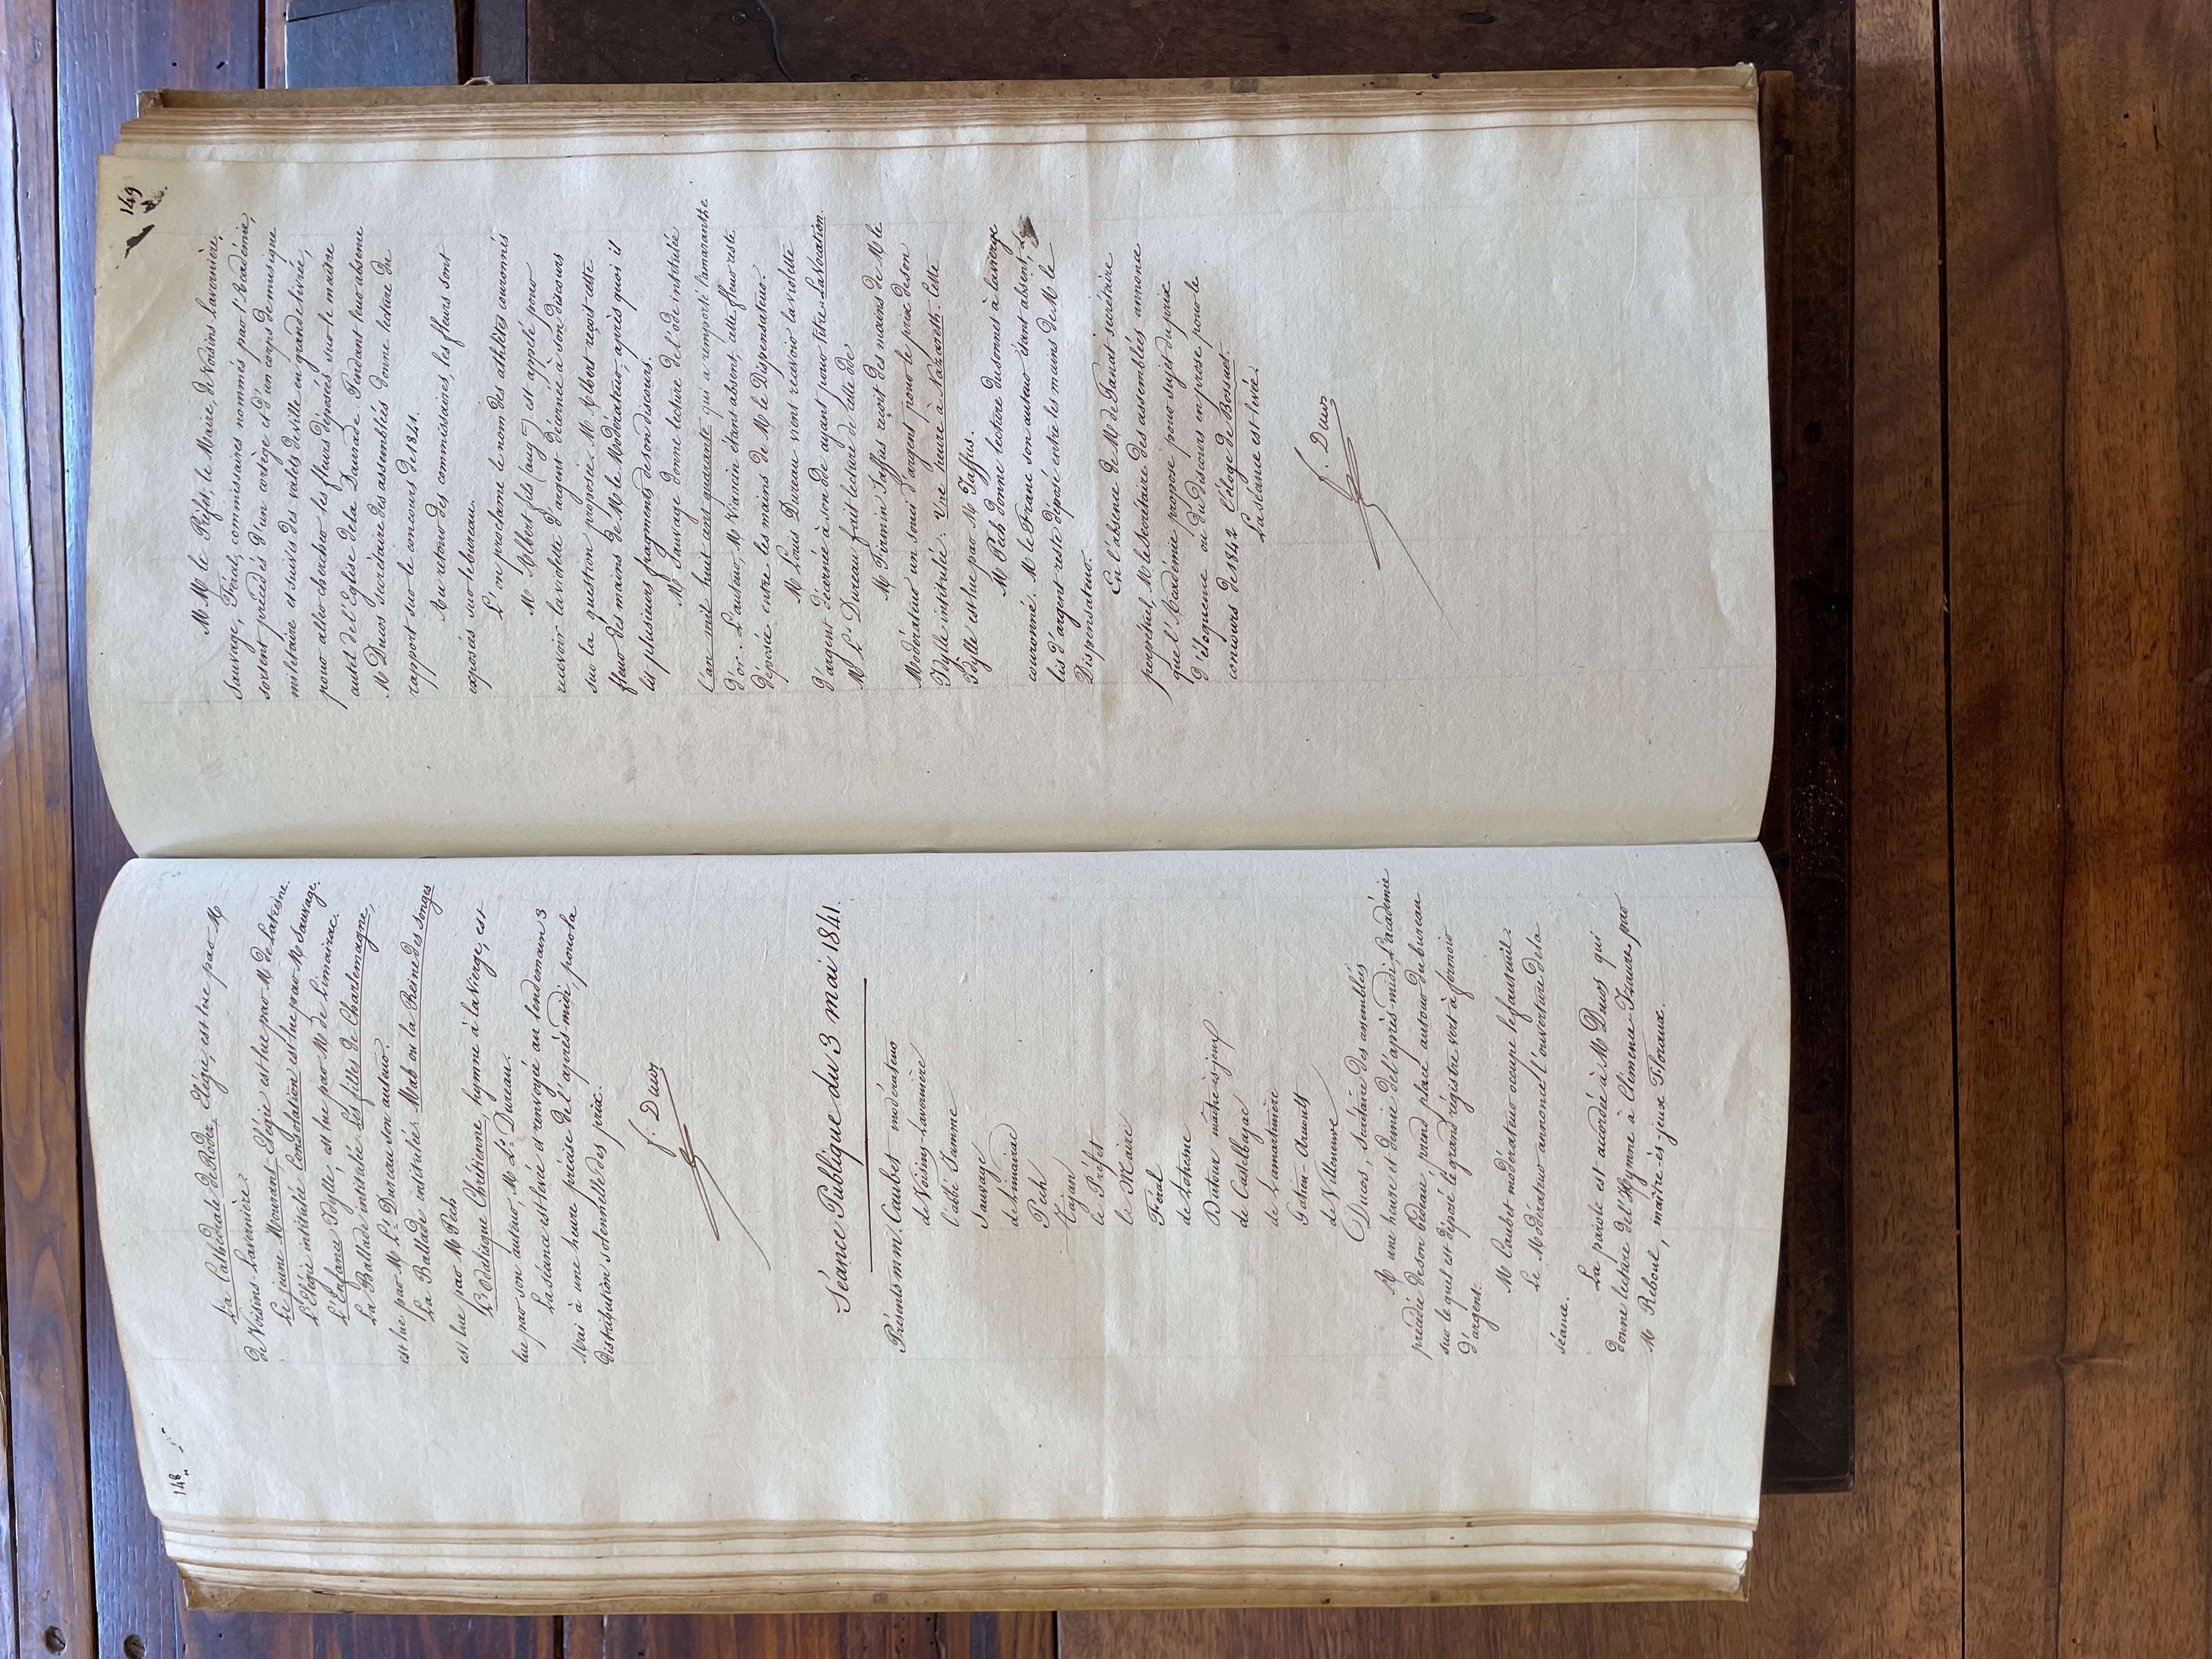 148
La Cathédrale de Rodez, Elégie, est lue par M
de Voisins-Lavernière.
Le jeune Mourant, Elégie est lue par M de Latresne.
L'Elégie intitulée Consolation est lue par M Sauvage.
L'Enfance Idylle, est lue par M de Limairac.
La Ballade intitulée Les filles de Charlemagne,
est lue par M Ls Dureau son auteur.
La Ballade intitulée Mab ou la Reine des Songes
est lue par M Pech
L'Odalisque Chrétienne, hymne à la Vierge, est
lue par son auteur, M Ls Dureau.
La séance est levée et renvoyée au lendemain 3
Mai à une heure précise de l'après-midi, pour la
distribution solennelle des prix.
f. Ducos
Séance Publique du 3 mai 1841.
Présents m.m. Caubet modérateur
de Voisins-Lavernière
l'abbé Jamme
Sauvage
de Limairac
Pech
Tajan
le Préfet
le Maire
Féral
de Latresne
Dutour maître-ès-jeux
de Castelbajac
de Lamartinière
Gatien-Arnoult
de Villeneuve
Ducos, Secrétaire des assemblées
A une heure et demie de l'après-midi, l'académie
précédée de son bedeau, prend place autour du bureau
sur le quel est déposé le grand régistre vert à fermoir
d'argent.
M Caubet modérateur occupe le fauteuil.
Le Modérateur annonce l'ouverture de la
séance.
La parole est accordée à M Ducos qui
donne lecture de l'Hymne à Clémence-Isaure, par
M Reboul, maître-ès-jeux Floraux.
149
MM le Préfet, le Maire, de Voisins-Lavernière,
Sauvage, Féral, commissaires nommés par l'Académie,
sortent précédés d'un cortège et d'un corps de musique
militaire et suivis des valets de ville en grande livrée,
pour aller chercher les fleurs déposées sur le maître
autel de l'Eglise de la Daurade. Pendant leur absence
M Ducos secrétaire des assemblées donne lecture du
rapport sur le concours de 1841.
Au retour des commissaires, les fleurs sont
exposées sur le bureau.
L'on proclame le nom des athlètes couronnés
M Albert fils (aug) est appelé pour
recevoir la violette d'argent décernée à son discours
sur la question proposée. M Albert reçoit cette
fleur des mains de M le Modérateur, après quoi il
lit plusieurs fragments de son discours.
M Sauvage donne lecture de l'ode intitulée
l'an mil huit cent quarante qui a remporté l'amaranthe
d'or. L'auteur, M Viancin étant absent, cette fleur reste
déposée entre les mains de M le Dispensateur.
M Louis Dureau vient recevoir la violette
d'argent décernée à son ode ayant pour titre, La Vocation.
M Ls Dureau fait lecture de cette ode
M Firmin Jaffus reçoit des mains de M le
Modérateur un souci d'argent pour le prix de son
Idylle intitulée. Une heure à Nazareth. Cette
Idylle est lue par M Jaffus.
M Pech donne lecture du sonnet à la vierge
couronné. M le Franc son auteur étant absent, Le
lis d'argent reste déposé entre les mains de M le
Dispensateur.
En l'absence de M de Panat secrétaire
perpétuel, M le Secrétaire des assemblées annonce
que l'Académie propose pour sujet du prix
d'éloquence ou du discours en prose pour le
concours de 1842 l'éloge de Bossuet.
La séance est levée.
f. Ducos